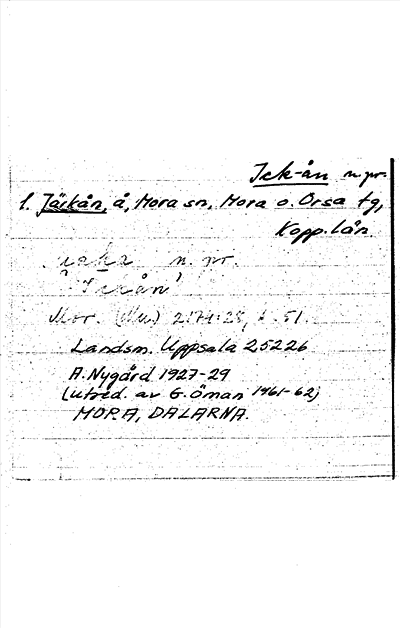 Ick-ån n.pr.
1. Järkån, å, Mora sn, Mora o. Orsa tg,
Kopp. län
n. pr.
Mor. (Mu)
Landsm. Uppsala 25226
A. Nygård 1927-29
(utred. av G. Öman 1961-62)
MORA, DALARNA.